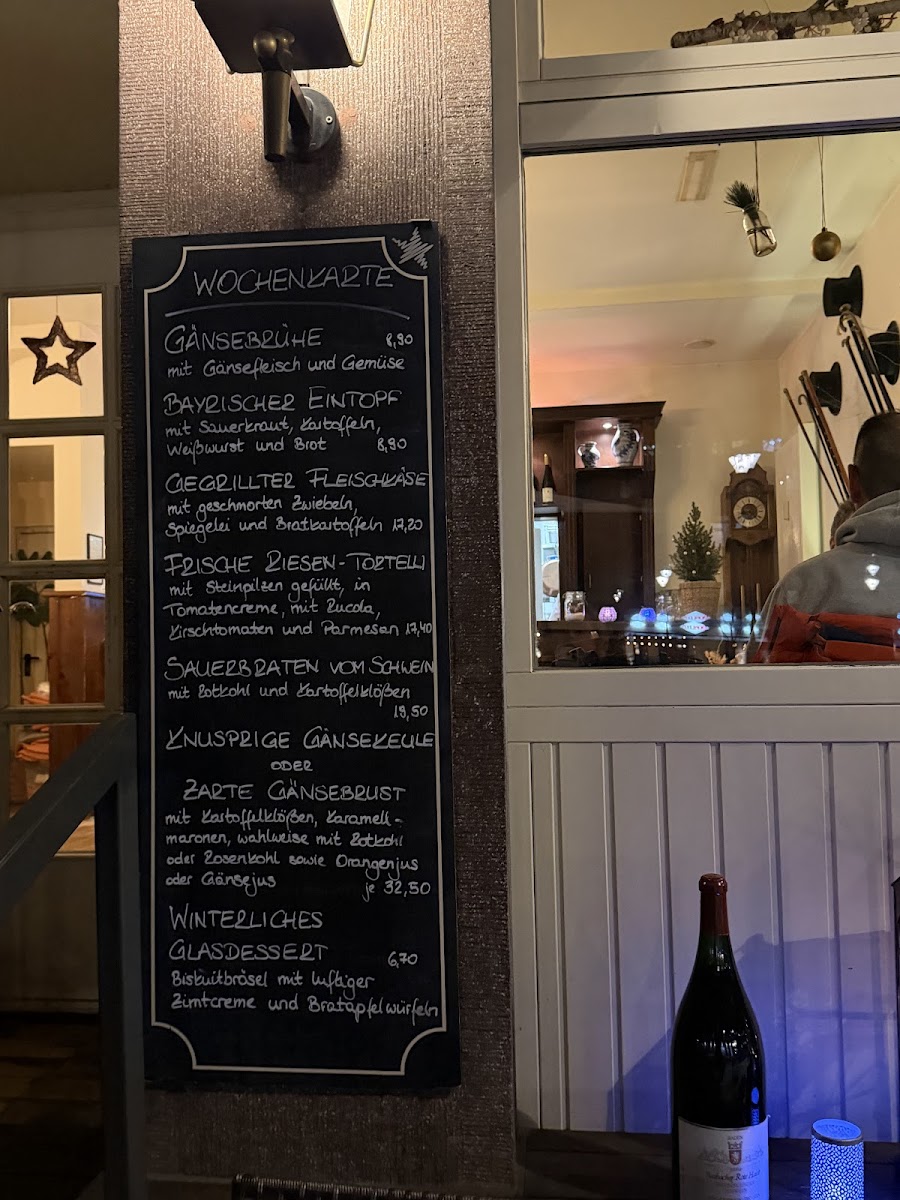 WOCHENKARTE
GÄNSEBRÜHE 8,90
mit Gänsefleisch und Gemüse
BAYRISCHER EINTOPF
mit Sauerkraut, Kartoffeln,
Weißwurst und Brot 8,90
GEGRILLTER FLEISCHKÄSE
mit geschmorten Zwiebeln,
Spiegelei und Bratkartoffeln 17,20
FRISCHE RIESEN-TORTELLI
mit Steinpilzen gefüllt, in
Tomatencreme, mit Rucola,
Kirschtomaten und Parmesan 17,40
SAUERBRATEN VOM SCHWEIN
mit Rotkohl und Kartoffelklößen
19,50
KNUSPRIGE GÄNSEKEULE
ODER
ZARTE GÄNSEBRUST
mit Kartoffelklößen, Karamell-
maronen, wahlweise mit Rotkohl
oder Rosenkohl sowie Orangenjus
oder Gänsejus je 32,50
WINTERLICHES
GLASDESSERT 6,70
Biskuitbrösel mit luftiger
Zimtcreme und Bratapfelwürfeln